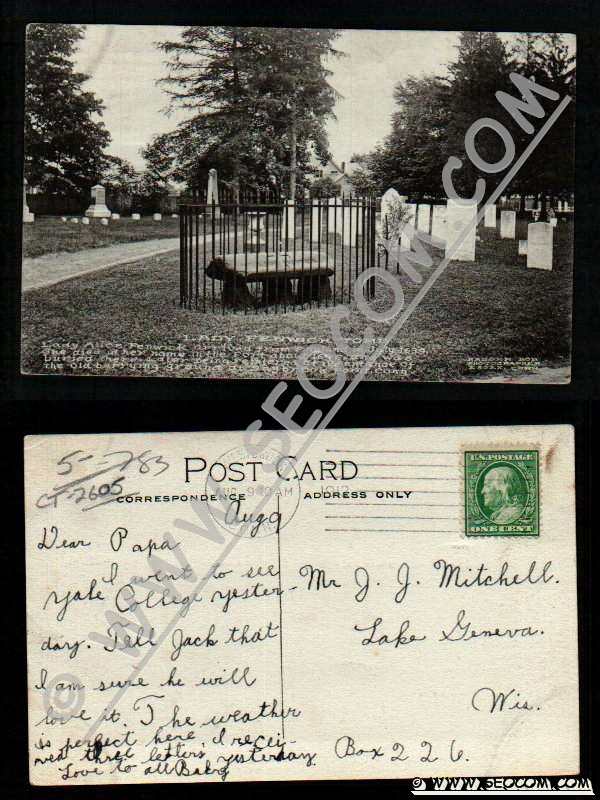 WWW.SEOCOM.COM
LADY FENWICK TOMB
Lady Alice Fenwick
She died at her home in the Fort about
buried there
the old burying ground
5-783
CT-2605
POST CARD
CORRESPONDENCE
ADDRESS ONLY
AUG 9
AM
1912
U.S. POSTAGE
ONE CENT
Aug 9
Dear Papa
I went to see
Yale College yester-
day. Tell Jack that
I am sure he will
love it. The weather
is perfect here. I recei-
ved three letters yesterday
Love to all Baby
Mr J. J. Mitchell.
Lake Geneva.
Wis.
Box 226.
WWW.SEOCOM.COM
© WWW.SEOCOM.COM